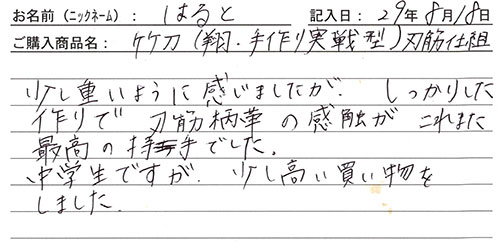 お名前(ニックネーム): はると 記入日: 29年8月18日
ご購入商品名: 竹刀(翔・手作り実戦型)刃筋仕組
少し重いように感じましたが、しっかりした
作りで 刃筋柄革の感触が これまた
最高の持手でした。
中学生ですが、少し高い買い物を
しました。